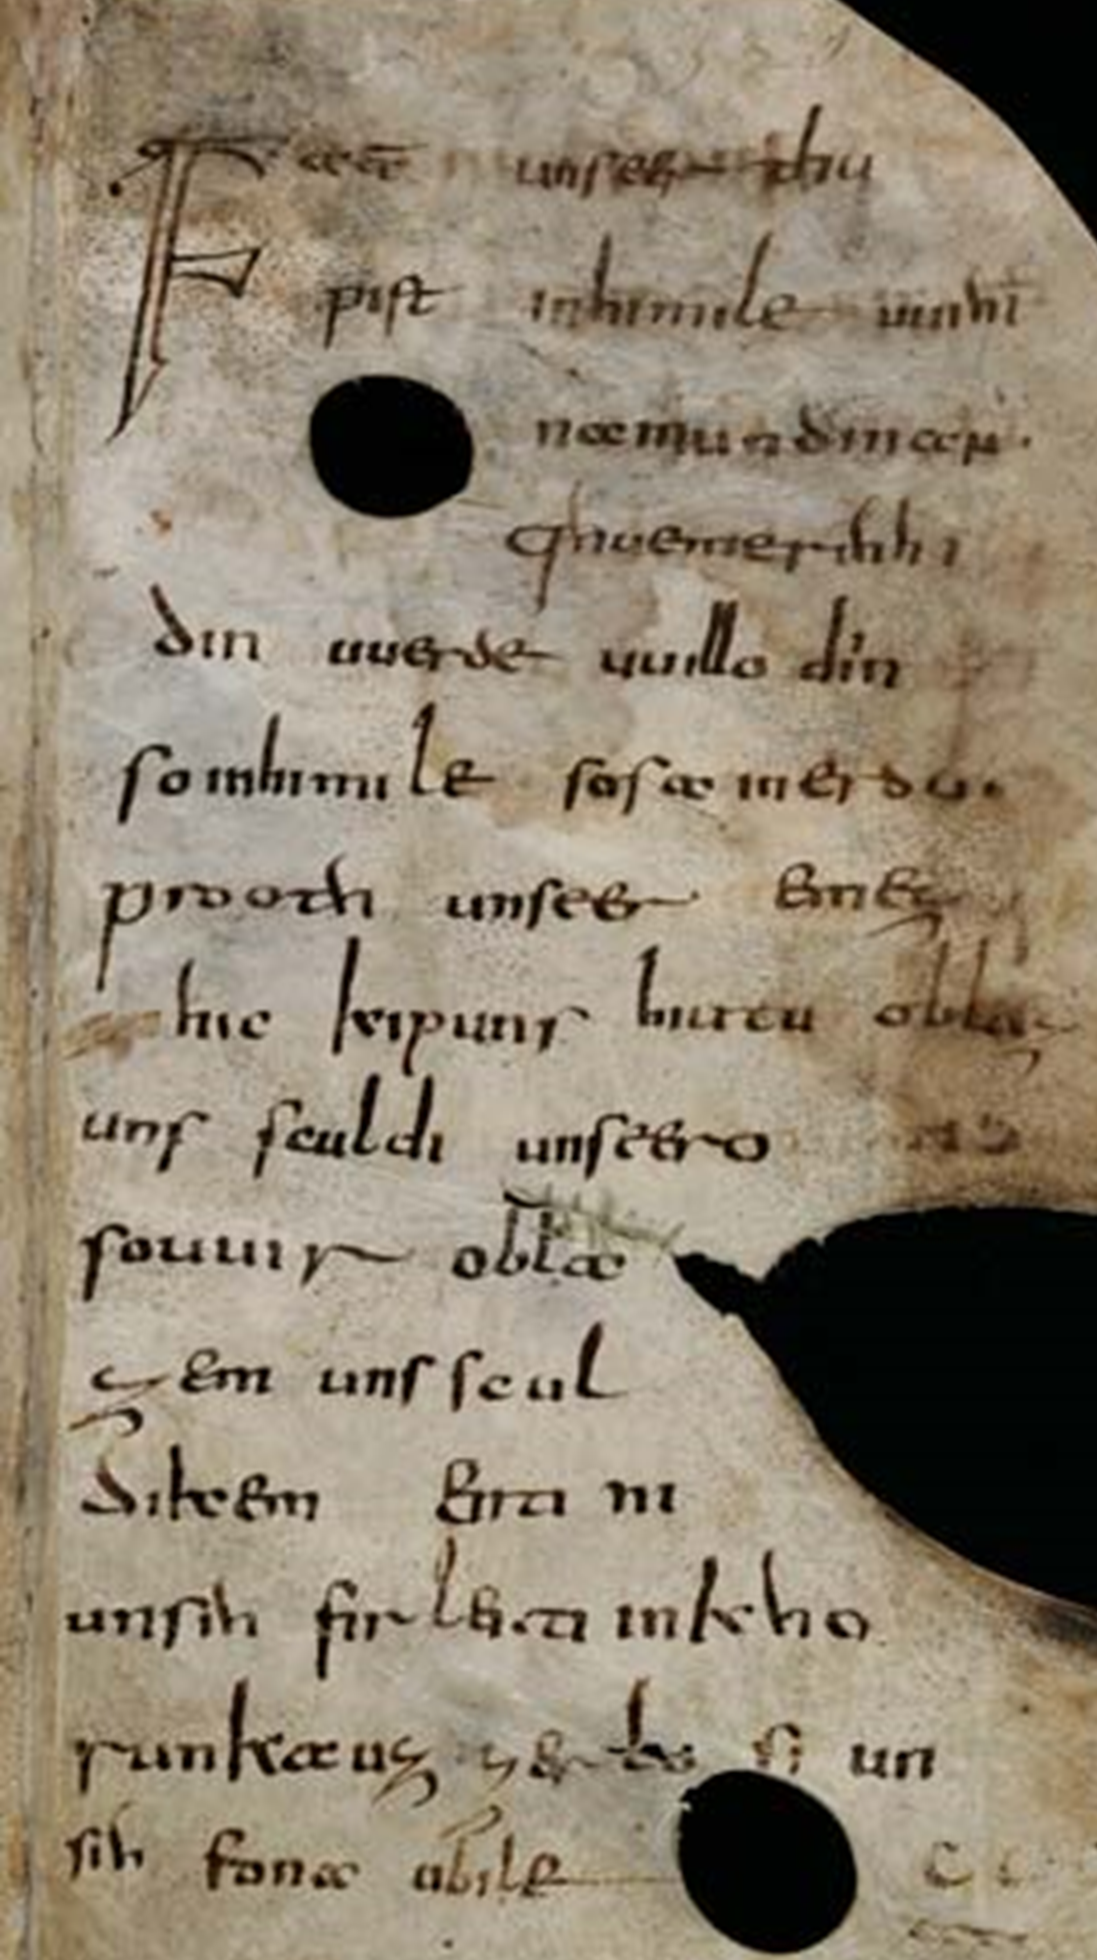 Fat̄ unseer thu
pist inhimile uuihi
namun dinan.
qhueme rihhi
din uuerde uuillo diin
so inhimile sosa in erdu.
prooth unseer emez
hic kip uns hiutu oblaz
uns sculdi unseero
so uuir obla
zem uns scul
dikem enti ni
unsih firleiti in khho
runka uz zer losi un
sih fona ubile